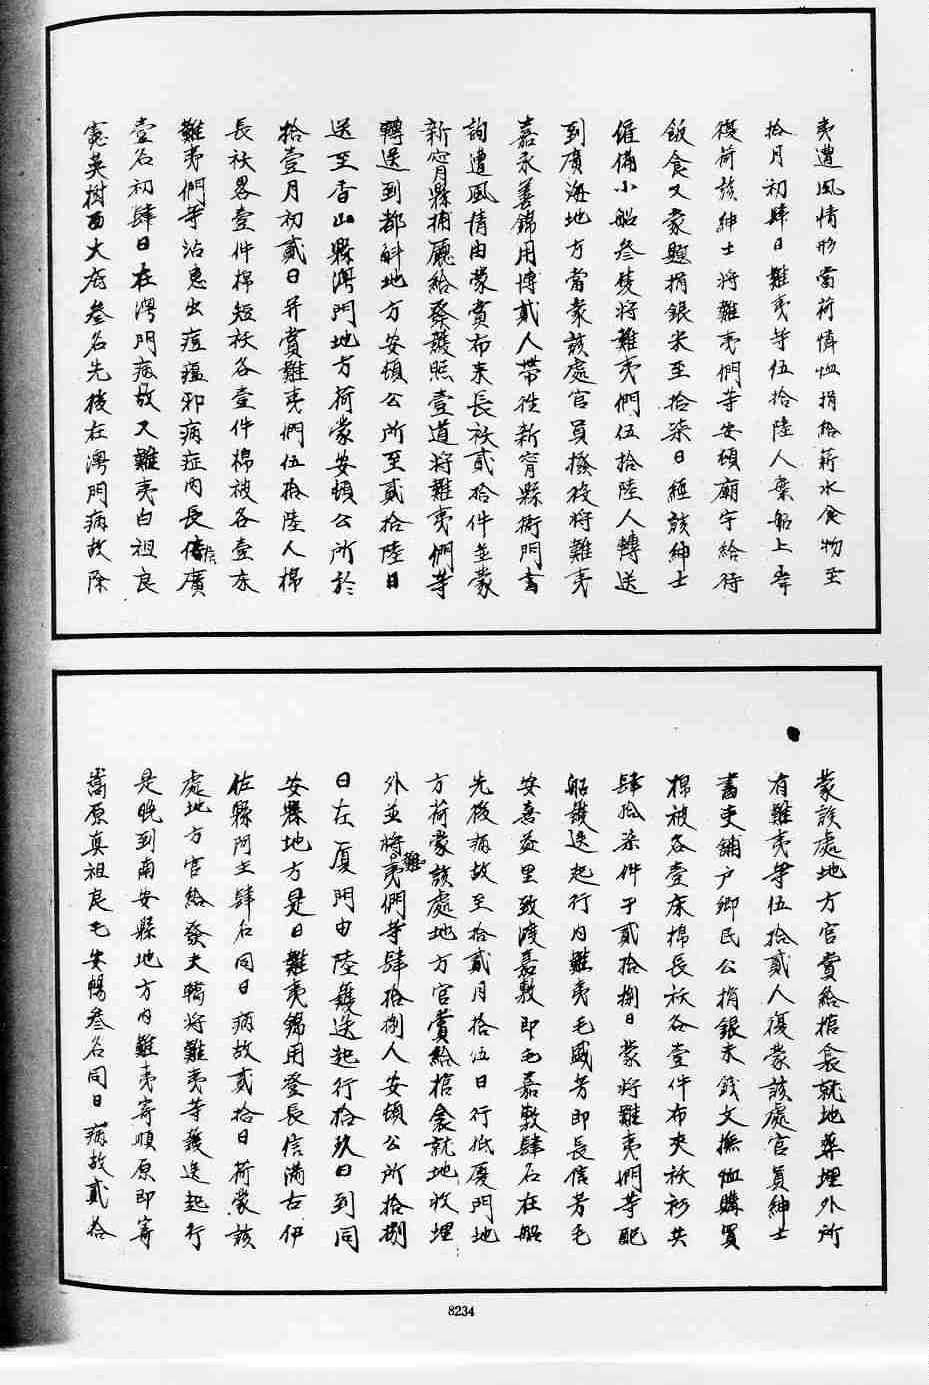 夷遭風情形當荷憐恤捐給薪水食物至
拾月初肆日難夷等伍拾陸人棄船上岸
復荷該紳士將難夷們等安頓廟宇給待
飯食又蒙題捐銀米至拾柒日經該紳士
催備小船叁隻將難夷們伍拾陸人轉送
到廣海地方當蒙該處官員撥役將難夷
嘉永善錦用博貳人帶往新甯縣衙門書
詢遭風情由蒙賞布末長袄貳拾件並蒙
新甯縣捕廳給發護照壹道將難夷們等
轉送到都斛地方安頓公所至貳拾陸日
送至香山縣灣門地方荷蒙安頓公所於
拾壹月初貳日并賞難夷們伍拾陸人棉
長袄畧壹件棉短袄各壹件棉被各壹床
難夷們等沾患出痘瘟邪病症內長廣
壹名初肆日在灣門病故又難夷白祖良
憲英樹西大叁名先後在灣門病故除
蒙該處地方官賞給棺衾就地葬埋外所
有難夷等伍拾貳人復蒙該處官員紳士
書吏鋪户鄉民公捐銀米錢文撫恤購買
棉被各壹床棉長袄各壹件布夾袄衫共
肆拾柒件于貳拾捌日蒙將難夷們等配
船護送起行內難夷毛盛芳即長信芳毛
安喜益里致渡嘉敷即毛嘉敷肆名在船
先後病故至拾貳月拾伍日行抵廈門地
方荷蒙該處地方官賞給棺衾就地收埋
外並將難夷們等肆拾捌人安頓公所拾捌
日在廈門由陸護送起行拾玖日到同
安縣地方是日難夷錦用登長信滿古伊
佐縣阿主肆名同日病故貳拾日荷蒙該
處地方官給發夫轎將難夷等護送起行
是晚到南安縣地方內難夷寄順原即寄
嵩原真祖良毛安暢叁名同日病故貳拾
8234